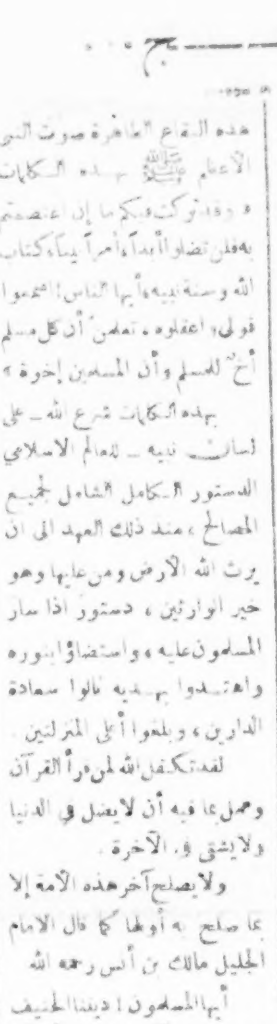 هذه البقاع الطاهرة صوت النبي
الأعظم ﷺ بهذه الكلمات
« وقد تركت فيكم ما إن اعتصمتم
به فلن تضلوا أبداً، أمراً بيناً، كتاب
الله وسنة نبيه، أيها الناس! اسمعوا
قولى واعقلوه، تعلمن أن كل مسلم
أخ للمسلم وأن المسلمين إخوة »
بهذه الكلمات شرع الله ـ على
لسان نبيه ـ للعالم الاسلامي
الدستور الكامل الشامل لجميع
المصالح، منذ ذلك العهد الى ان
يرث الله الأرض ومن عليها وهو
خير الوارثين، دستور اذا سار
المسلمون عليه، واستضاؤا بنوره
واهتدوا بهديه نالوا سعادة
الدارين، وبلغوا أعلى المنزلتين.
لقد تكفل الله لمن قرأ القرآن
وعمل بما فيه أن لا يضل في الدنيا
ولا يشقى في الآخرة.
ولا يصلح آخر هذه الأمة إلا
بما صلح به أولها كما قال الامام
الجليل مالك بن أنس رحمه الله
أيها المسلمون! ديننا الحنيف